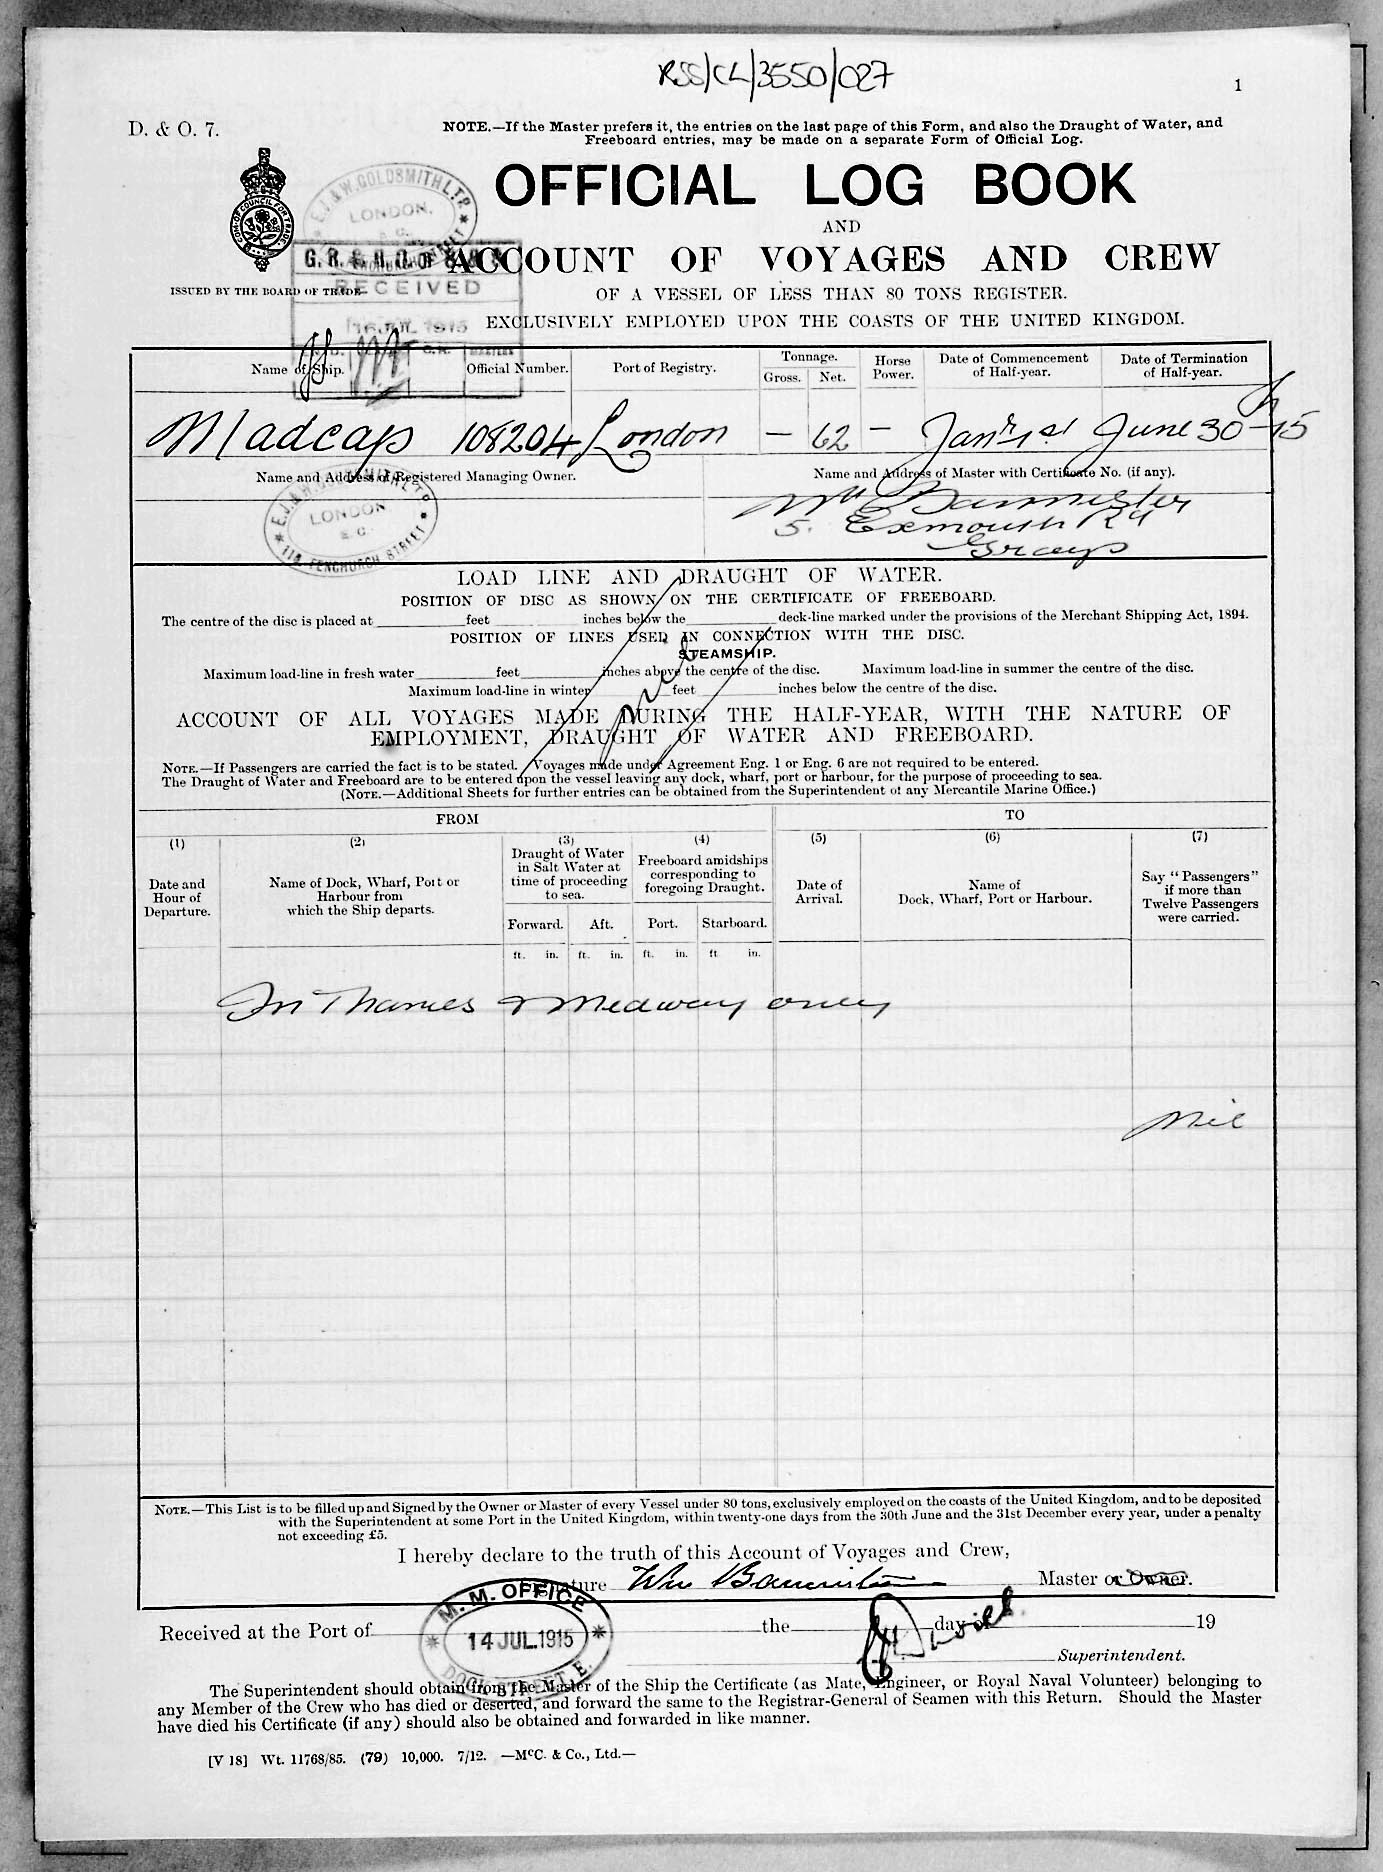 RSS/CL/3550/027
1
D. & O. 7.
NOTE.—If the Master prefers it, the entries on the last page of this Form, and also the Draught of Water, and
Freeboard entries, may be made on a separate Form of Official Log.
OFFICIAL LOG BOOK
AND
ACCOUNT OF VOYAGES AND CREW
OF A VESSEL OF LESS THAN 80 TONS REGISTER.
EXCLUSIVELY EMPLOYED UPON THE COASTS OF THE UNITED KINGDOM.
COM. OF COUNCIL FOR TRADE
ISSUED BY THE BOARD OF TRADE
E.J. & W. GOLDSMITH LTD.
LONDON.
E.C.
FENCHURCH STREET
G. R. & H. O. OF S. & S.
RECEIVED
16 JUL 1915
Name of Ship.
Official Number.
Port of Registry.
Tonnage.
Gross. Net.
Horse Power.
Date of Commencement of Half-year.
Date of Termination of Half-year.
Madcap 108204 London — 62 — Jany 1st June 30th 15
Name and Address of Registered Managing Owner.
Name and Address of Master with Certificate No. (if any).
E.J. & W. GOLDSMITH LTD
LONDON
E.C.
FENCHURCH STREET
Wm Bannister
5. Exmouth Rd
Grays
LOAD LINE AND DRAUGHT OF WATER.
POSITION OF DISC AS SHOWN ON THE CERTIFICATE OF FREEBOARD.
The centre of the disc is placed at feet inches below the deck-line marked under the provisions of the Merchant Shipping Act, 1894.
POSITION OF LINES USED IN CONNECTION WITH THE DISC.
STEAMSHIP.
Maximum load-line in fresh water feet inches above the centre of the disc. Maximum load-line in summer the centre of the disc.
Maximum load-line in winter feet inches below the centre of the disc.
nil
ACCOUNT OF ALL VOYAGES MADE DURING THE HALF-YEAR, WITH THE NATURE OF
EMPLOYMENT, DRAUGHT OF WATER AND FREEBOARD.
NOTE.—If Passengers are carried the fact is to be stated. Voyages made under Agreement Eng. 1 or Eng. 6 are not required to be entered.
The Draught of Water and Freeboard are to be entered upon the vessel leaving any dock, wharf, port or harbour, for the purpose of proceeding to sea.
(NOTE.—Additional Sheets for further entries can be obtained from the Superintendent of any Mercantile Marine Office.)
FROM
TO
(1)
Date and
Hour of
Departure.
(2)
Name of Dock, Wharf, Port or
Harbour from
which the Ship departs.
(3)
Draught of Water
in Salt Water at
time of proceeding
to sea.
Forward. Aft.
ft. in. ft. in.
(4)
Freeboard amidships
corresponding to
foregoing Draught.
Port. Starboard.
ft. in. ft in.
(5)
Date of
Arrival.
(6)
Name of
Dock, Wharf, Port or Harbour.
(7)
Say "Passengers"
if more than
Twelve Passengers
were carried.
In Thames & Medway only
nil
NOTE.—This List is to be filled up and Signed by the Owner or Master of every Vessel under 80 tons, exclusively employed on the coasts of the United Kingdom, and to be deposited
with the Superintendent at some Port in the United Kingdom, within twenty-one days from the 30th June and the 31st December every year, under a penalty
not exceeding £5.
I hereby declare to the truth of this Account of Voyages and Crew,
Signature Wm Bannister Master or Owner.
M. M. OFFICE
14 JUL.1915
DOCK STREET E.
Received at the Port of the day of 19
Superintendent.
The Superintendent should obtain from the Master of the Ship the Certificate (as Mate, Engineer, or Royal Naval Volunteer) belonging to
any Member of the Crew who has died or deserted, and forward the same to the Registrar-General of Seamen with this Return. Should the Master
have died his Certificate (if any) should also be obtained and forwarded in like manner.
[V 18] Wt. 11768/85. (79) 10,000. 7/12. —McC. & Co., Ltd.—